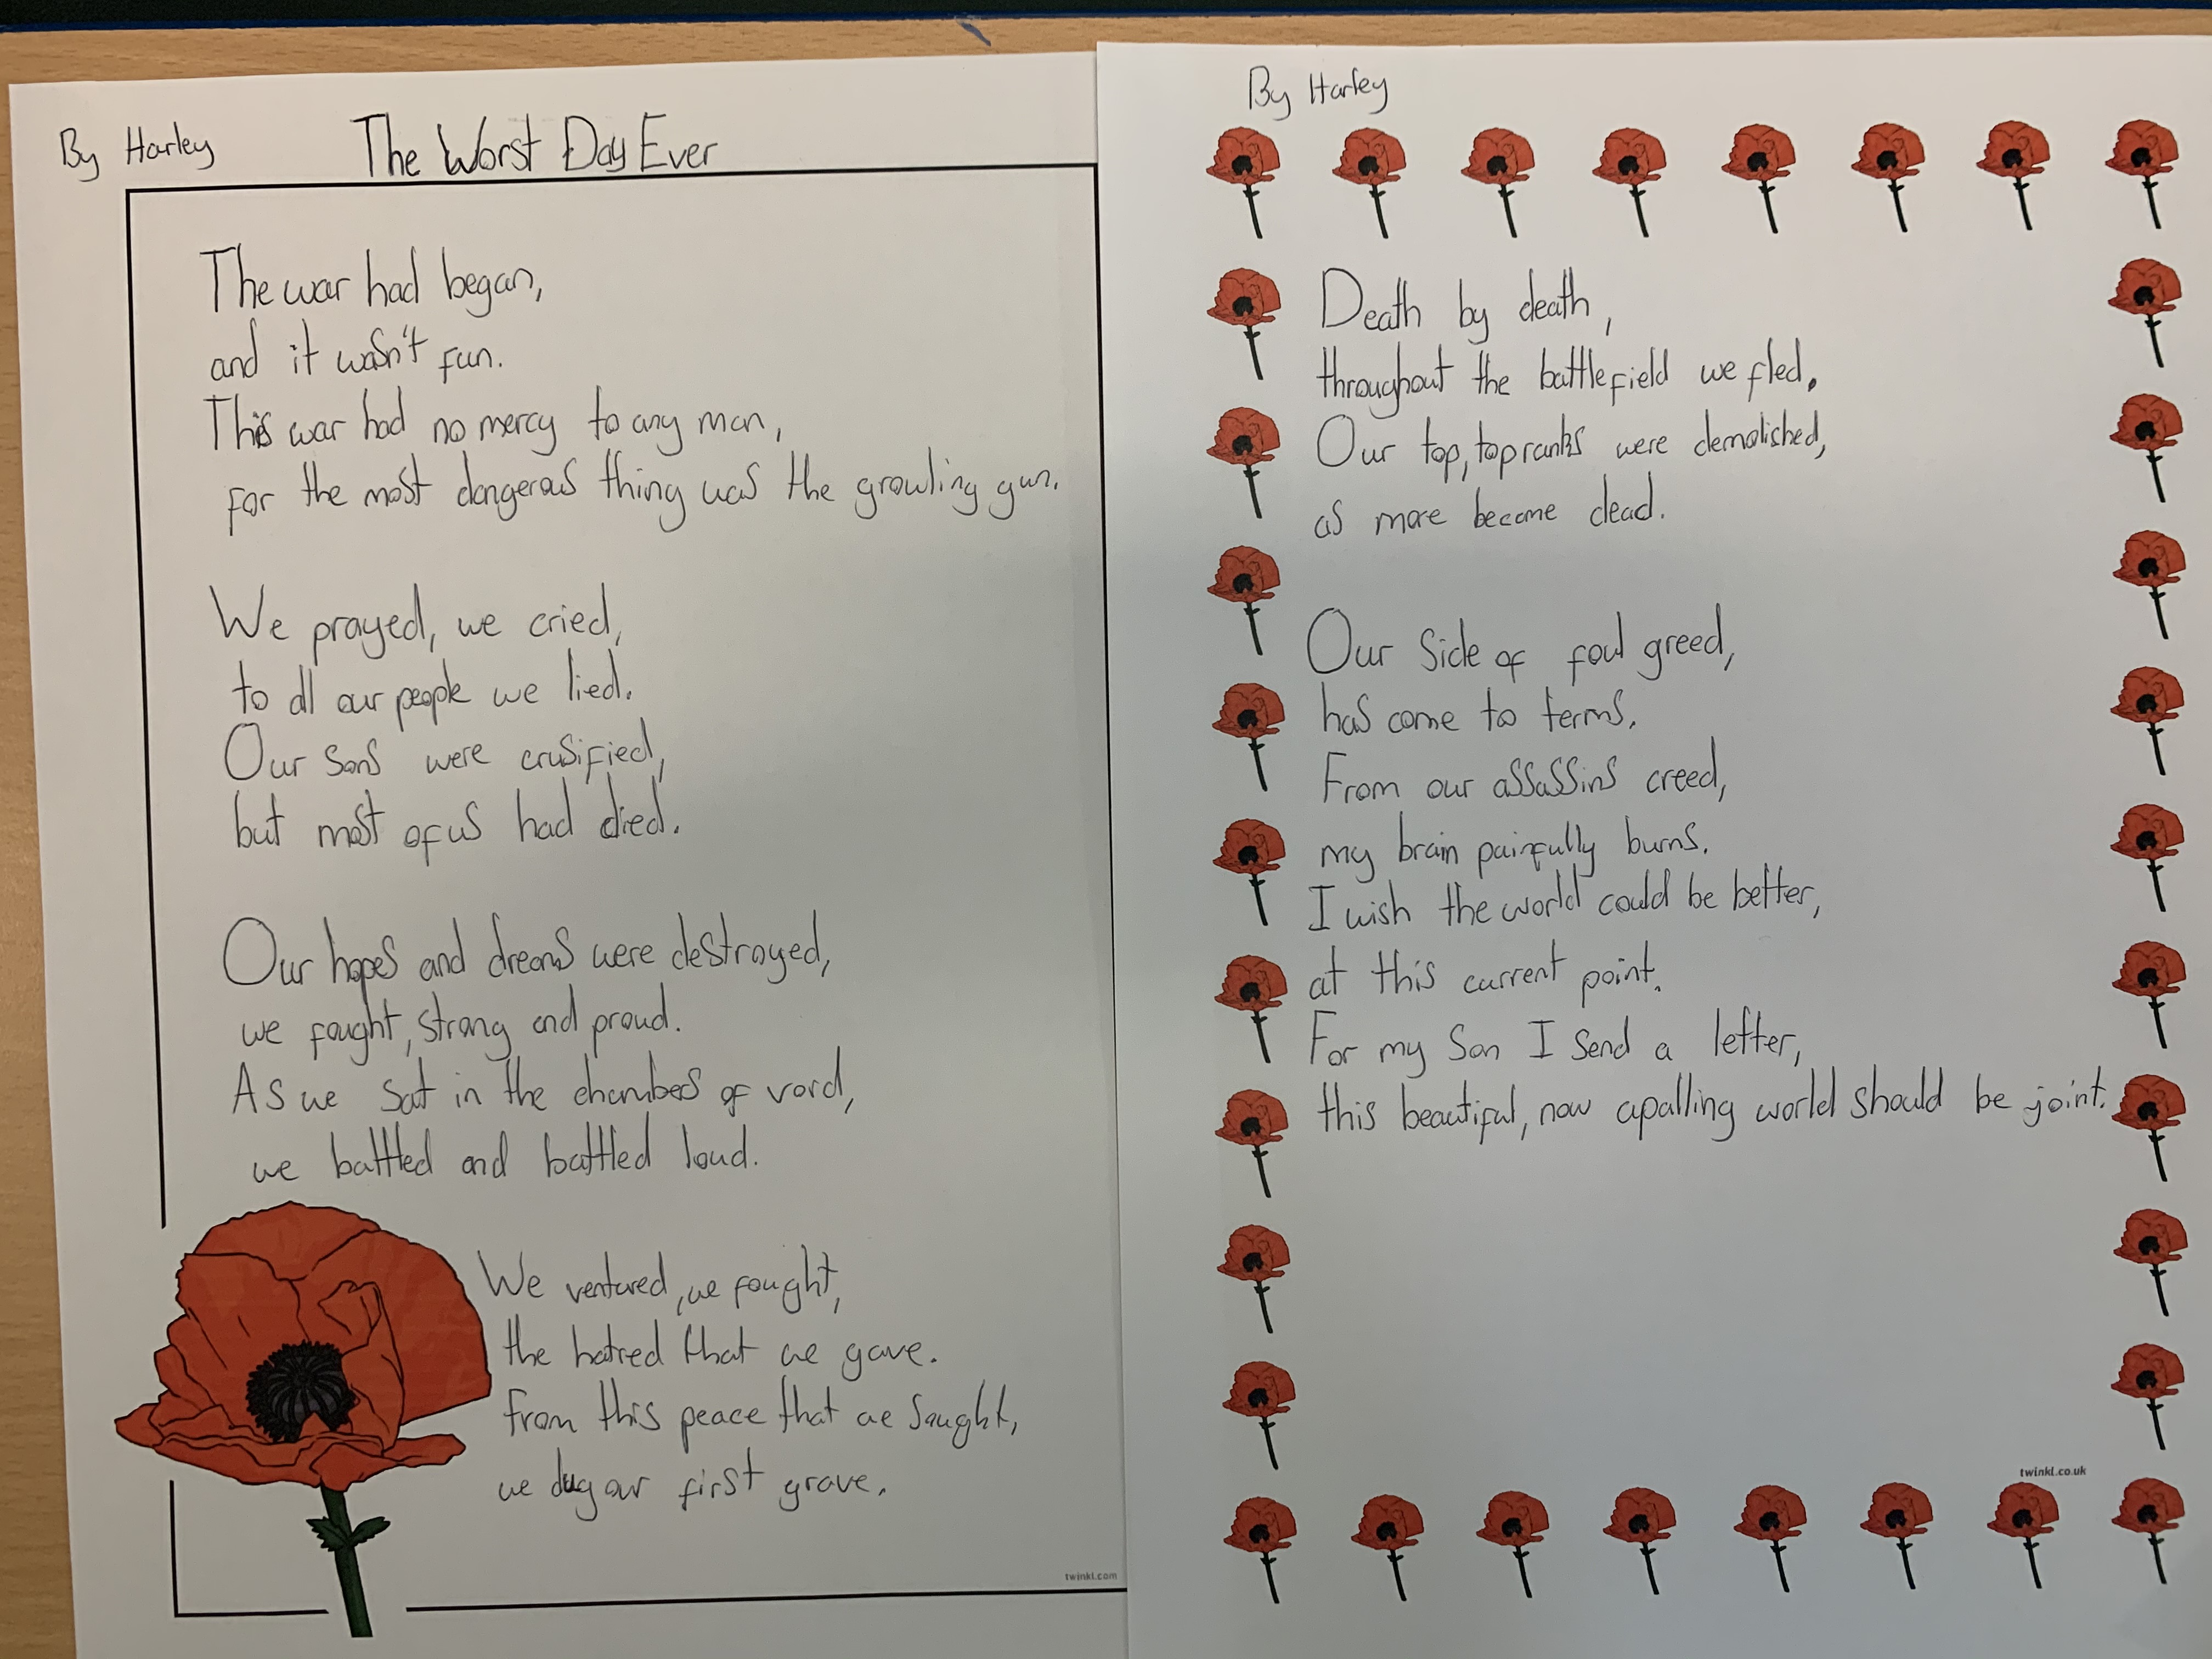 By Harley
The Worst Day Ever
The war had began,
and it wasn't fun.
This war had no mercy to any man,
for the most dangerous thing was the growling gun.
We prayed, we cried,
to all our people we lied.
Our sons were crusified,
but most of us had died.
Our hopes and dreams were destroyed,
we fought, strong and proud.
As we sat in the chambers of void,
we battled and battled loud.
We ventured, we fought,
the hatred that we gave.
From this peace that we sought,
we dug our first grave.
twinkl.com
By Harley
Death by death,
throughout the battlefield we fled.
Our top, top ranks were demolished,
as more became dead.
Our side of foul greed,
has come to terms.
From our assassins creed,
my brain painfully burns.
I wish the world could be better,
at this current point.
For my son I send a letter,
this beautiful, now apalling world should be joint.
twinkl.co.uk